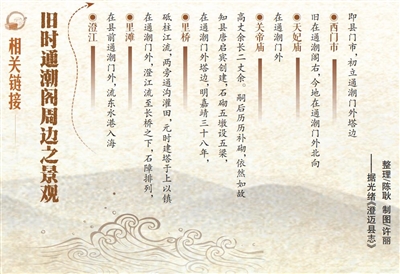 相关链接
旧时通潮阁周边之景观
澄江
在县前通潮门外，流东水港入海
里滩
在通潮门外，澄江流至长桥之下，石障排列，
砥柱江流，两旁通沟灌田，元时建塔于上以镇
里桥
在通潮门外塔边，明嘉靖三十八年，
知县唐启宾创建，石砌五墩设五梁，
高丈余长二丈余。嗣后历历补砌，依然如故
关帝庙
在通潮门外
天妃庙
旧在通潮阁右，今地在通潮门外北向
西门市
即县门市，初立通潮门外塔边
——据光绪《澄迈县志》
整理/陈耿 制图/许丽